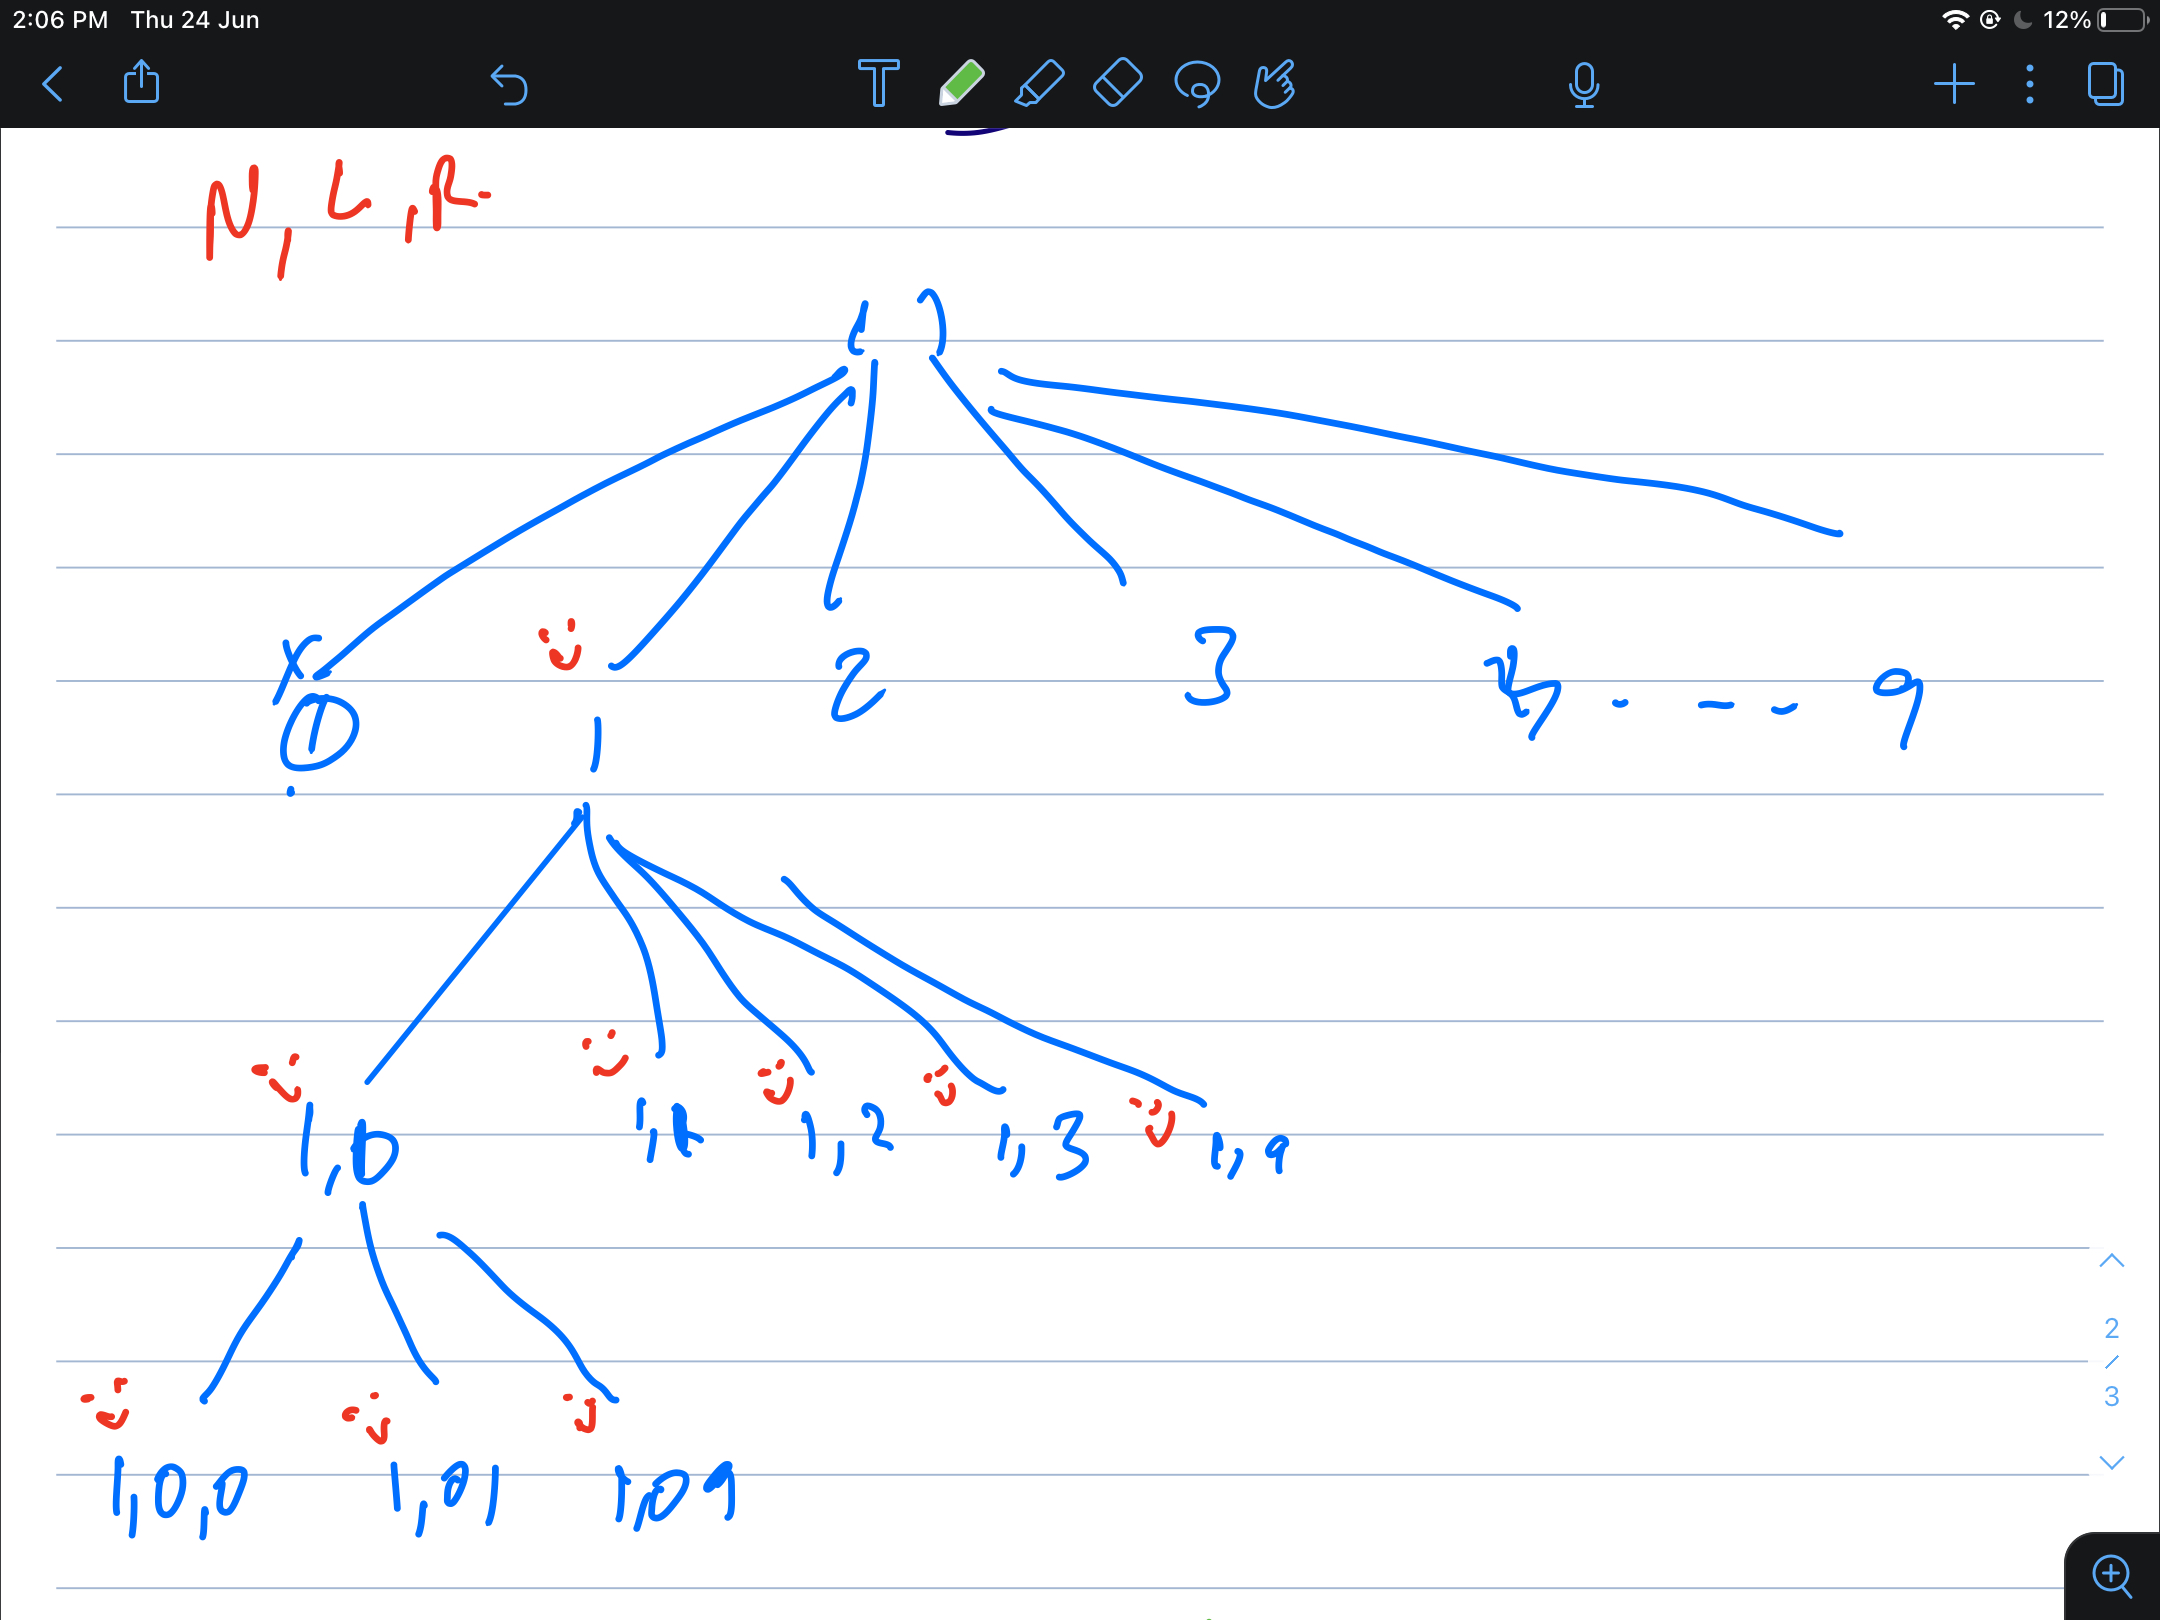 2:06 PM Thu 24 Jun 12%
N, L, R
( )
0 1 2 3 4 - - - 9
1,0 1,1 1,2 1,3 1,9
1,0,0 1,01 1,09
2
/
3